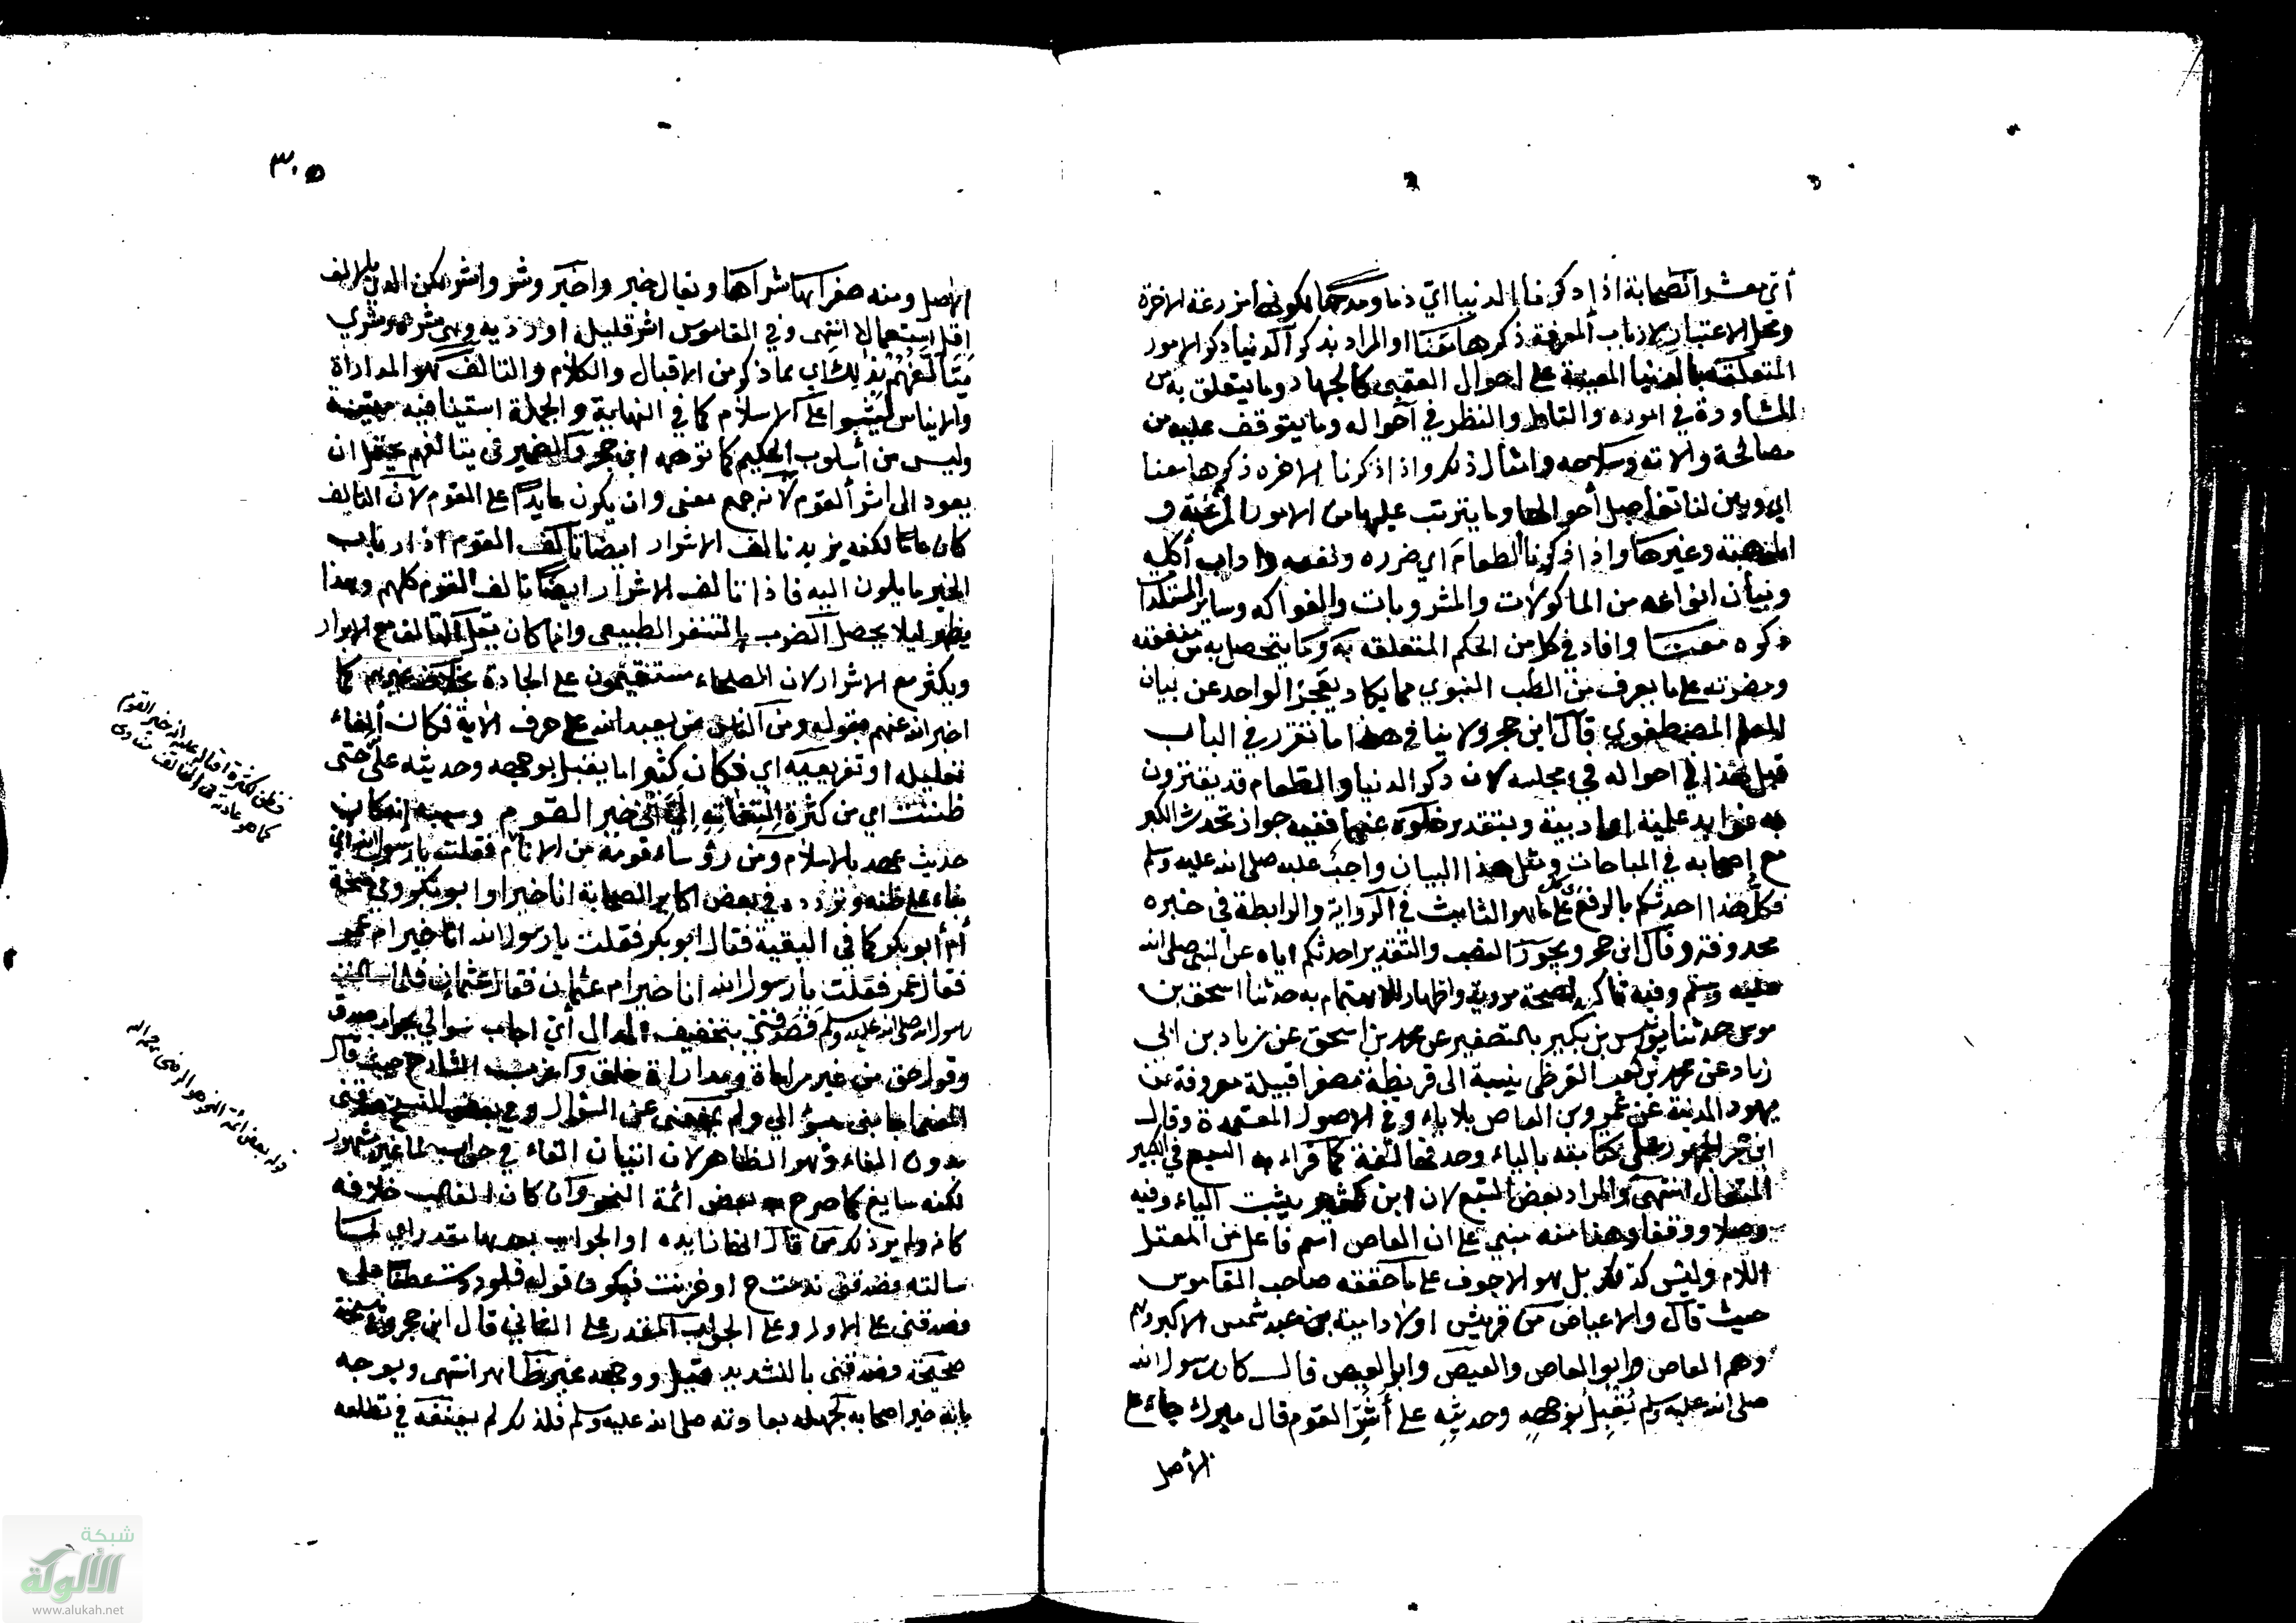 أي معشر الصحابة اذا ذكرنا الدنيا اي ذما ومدحا لكونها مزرعة الاخرة
ومحل الاعتبار لارباب المعرفة ذكرها معنا او المراد بذكر الدنيا ذكر الامور
المتعلقة بالدنيا المعينة على احوال العقبى كالجهاد وما يتعلق به من
المشاورة في اموره والتامل والنظر في احواله وما يتوقف عليه من
مصالحه والاته وسلاحه وامثال ذلك واذا ذكرنا الاخره ذكرها معنا
اي وبين لنا تفاصيل احوالها وما يترتب عليها من الامور المرغبة و
المرهبة وغيرها واذا ذكرنا الطعام اي ضرره ونفعه واداب أكله
وبيان انواعه من الماكولات والمشروبات والفواكه وساير المستلذات
ذكره معنا وافاد في كل من الحكم المتعلقه به وما يتحصل به من منفعته
ومضرته على ما يعرف من الطب النبوي مما يكاد يعجز الواحد عن بيان
العلم المصطفوي قال ابن حجر ولا ينافي هذا ما تقرر في الباب
قبل هذا في احواله في مجلسه لان ذكر الدنيا والطعام قد يقترن
به فوايد علمية او ادبية وبتقدير خلوه عنهما ففيه جواز تحدث الكبير
مع اصحابه في المباحات ومثل هذا البيان واجب عليه صلى الله عليه وسلم
فكل هذا احدثكم بالرفع على ما هو الثابت في الرواية والرابطة في خبره
محذوفة وقال ابن حجر ويجوز النصب والتقدير احدثكم اياه عن النبي صلى الله
عليه وسلم وفيه تاكيد لصحة مرويه واظهار للاهتمام به حدثنا اسحق بن
موسى حدثنا يونس بن بكير بالتصغير عن محمد بن اسحق عن زياد بن ابي
زياد عن محمد بن كعب القرظي نسبة الى قريظة مصغرا قبيلة معروفة من
يهود المدينة عن عمرو بن العاص بلا ياء وفي الاصول المعتمدة وقال
ابن حجر الجمهور على كتابته بالياء وحذفها لغة كما قراء به السبع في الكبير
المتعال انتهى والمراد بعض السبع لان ابن كثير يثبت الياء وفيه
وصلا ووقفا وهذا منه مبني على ان العاص اسم فاعل من المعتل
اللام وليس كذلك بل هو الاجوف على ما حققه صاحب القاموس
حيث قال والاعياص من قريش اولاد امية بن عبد شمس الاكبر وهم
وهم العاص وابو العاص والعيص وابو العيص قال كان رسول الله
صلى الله عليه وسلم يُقبل بوجهه وحديثه على أشر القوم قال ميرك جاء على
الأصل
٣٠٥
الاصل ومنه صغراها شراها ويقال خير واخير وشر واشر لكن الذي بالالف
اقل استعمالا انتهى وفي القاموس اشر قليلة او رديه وهي شرة وشري
يتألفهم بذلك اي بما ذكر من الاقبال والكلام والتالف هو المداراة
والايناس ليثبتوا على الاسلام كما في النهاية والجملة استينافيه مبينة
وليس من أسلوب الحكيم كما توهمه ابن حجر والضمير في يتالفهم يحتمل ان
يعود الى اشر القوم لانه جمع معنى وان يكون عايدا على القوم لان التالف
كان عاما لكنه يزيد تالف الاشرار ايضا تالف القوم اذ ارباب
الخير مايلون اليه فاذا تالف الاشرار ايضا تالف القوم كلهم وهذا
يظهر ليلا يحصل الضرب بالتنفر الطبيعي وانما كان يقل التالف مع الابرار
ويكثر مع الاشرار لان الصلحاء مستقيمون على الجادة بخلاف غيرهم كما
اخبر الله عنهم بقوله ومن الناس من يعبد الله على حرف الاية فكان الفاء
تعليليه او تفريعيه اي فكان كثيرا ما يقبل بوجهه وحديثه عليّ حتى
ظننت اي من كثرة التفاته إليّ اني خير القوم وسببه انه كان
حديث عهد بالاسلام ومن رؤساء قومه من الانام فقلت يا رسول الله اي
بناء على ظنه وتردده في بعض اكابر الصحابة انا خير او ابو بكر وفي نسخة
أم أبو بكر كما في البقية فقال ابو بكر فقلت يا رسول الله انا خير ام عمر
فقال عمر فقلت يا رسول الله انا خير ام عثمان فقال عثمان فلما سالت
رسول الله صلى الله عليه وسلم فصدقني بتخفيف الدال أي اجاب سوالي بجواب صدق
وقول حق من غير مراعاة ومداراة خلق واغرب الشارح حيث قال
المعنى اجابني سؤالي ولم يمنعني عن السؤال وفي بعض النسخ صدقني
بدون الفاء وهو الظاهر لان اتيان الفاء في جواب لما غير مشهور
لكنه سايغ كما صرح به بعض ائمة النحو وان كان الغالب خلافه
كانه ولم يرد لكن قال الفا زايده او الجواب بعدها مقدر اي لما
سالته فصدقني ندمت ح او خزيت فيكون قوله فلوددت عطفا على
فصدقني على الاول وعلى الجواب المقدر على الثاني قال ابن حجر وفي نسخة
صحيحة فصدقني بالتشديد قيل ووجهه غير ظاهر انتهى ويوجه
بانه خير اصحابه لجهله بعادته صلى الله عليه وسلم فلذلك لم يعنفه في تطلعه
فظن لكثرة اقباله عليه انه خير القوم
كما هو عادته في التالف
قوله بعض ائمة النحو هو الرضى رحمه الله
شبكة
الألوكة
www.alukah.net